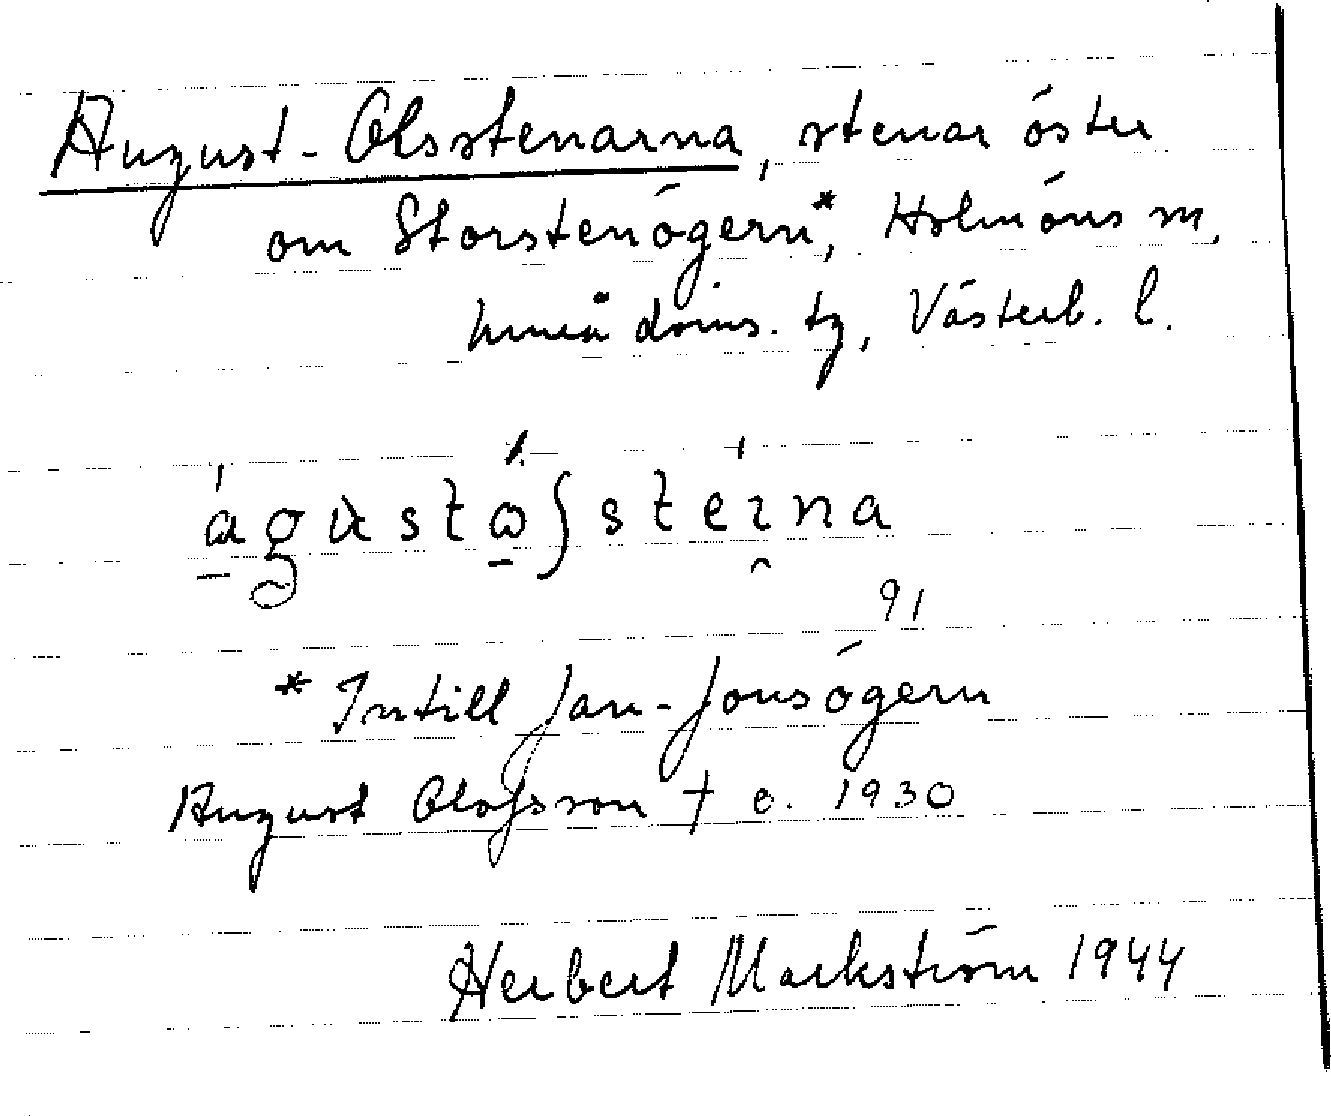 August-Olsstenarna, stenar öster
om Storstenögern*, Holmöns sn,
Umeå doms. tg, Västerb. l.
91
* Intill Jan-Jonsögern
August Olofsson † c. 1930
Herbert Markström 1944